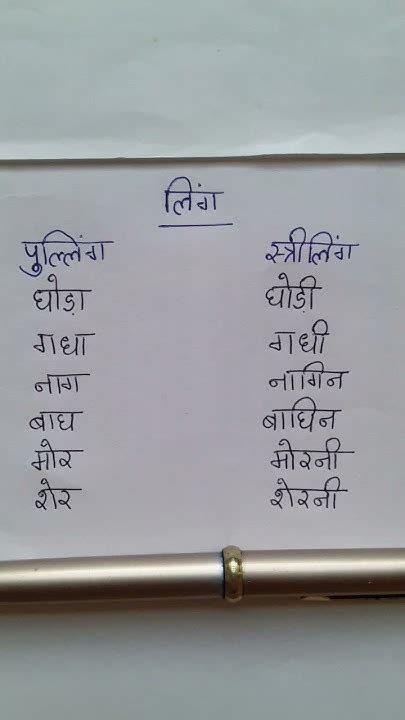 लिंग
पुल्लिंग स्त्रीलिंग
घोड़ा घोड़ी
गधा गधी
नाग नागिन
बाघ बाघिन
मोर मोरनी
शेर शेरनी